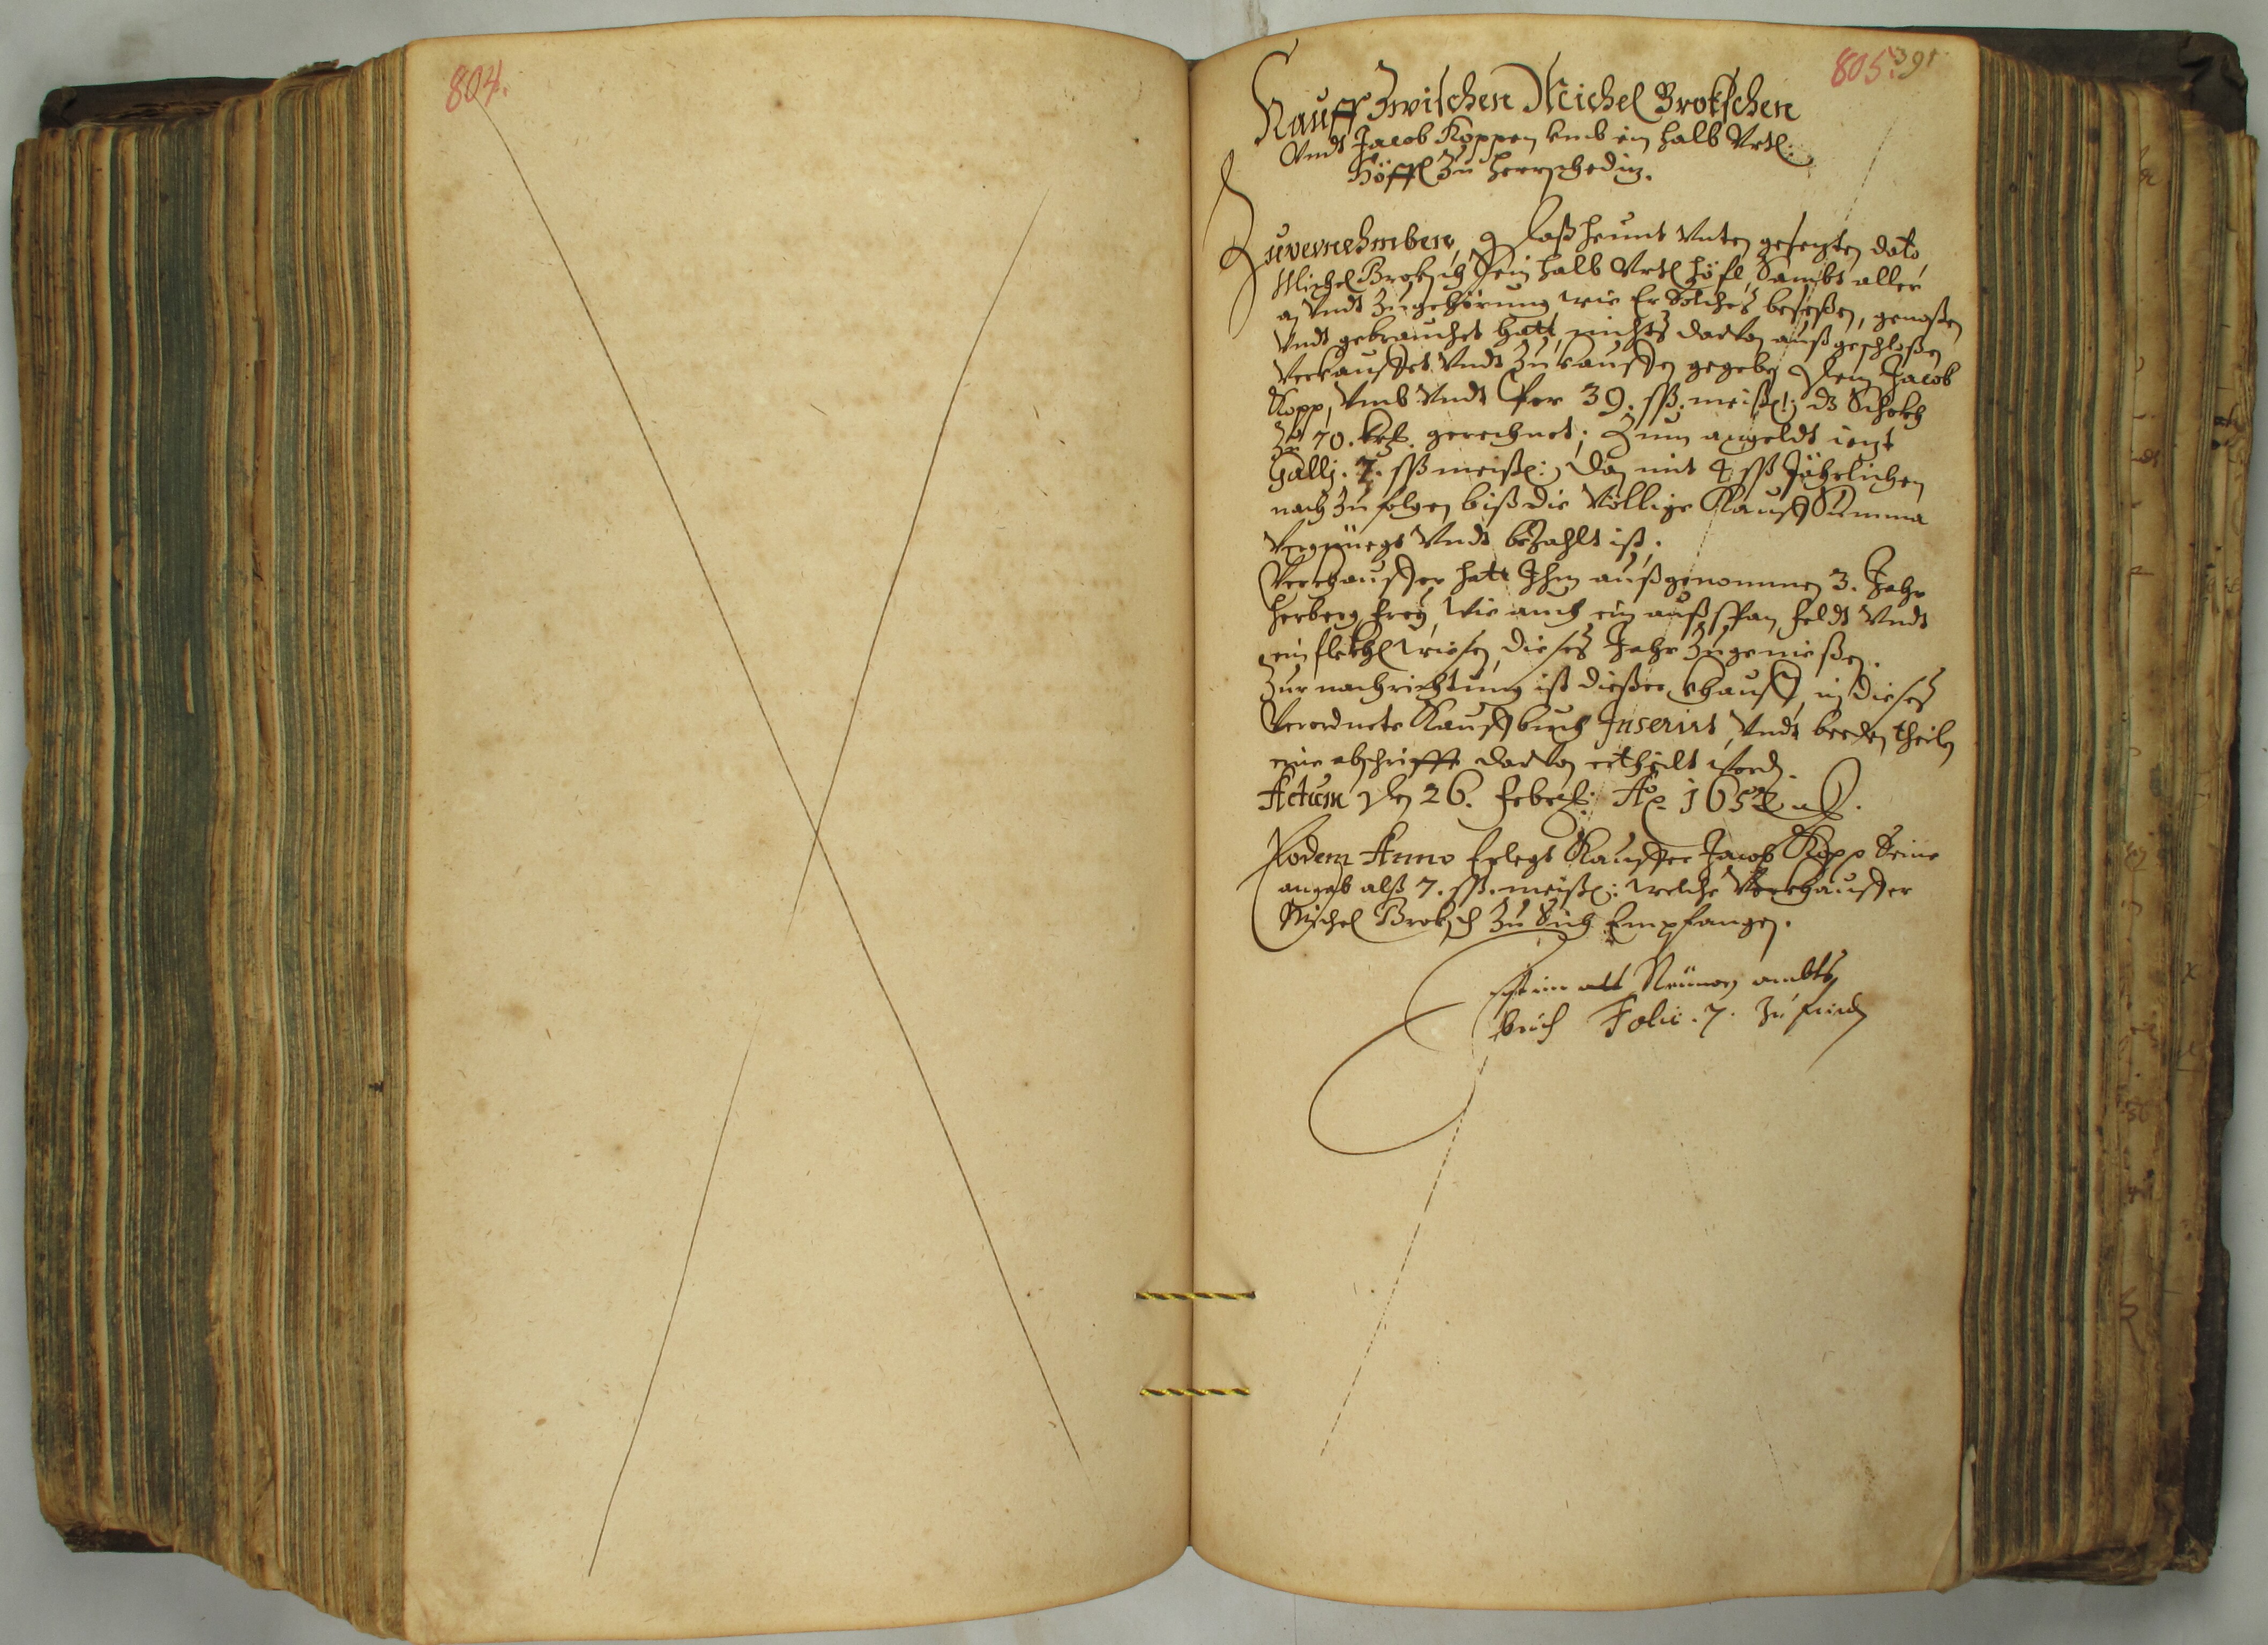 804.
805. 391
Kauff Zwischen Michel Brokschen
Vndt Jacob Koppen vmb ein halb Vrtl:
Höffl Zu
Zuvernehmben, daß heunt Vnten gesezten dato,
Michel Broksch Sein halb Vrtl höfl, Sambt aller
an Vndt Zugehörung wie Er Solches beseßen, genoßen
Vndt gebrauchet hatt, nichts darvon außgeschloßen
Verkauffet Vndt Zu kauffen gegeben dem Jacob
Kopp, Vmb Vndt Per 39. ßß. meißl: dz Schokh
Zu 70. kr. gerechnet; Zum angeldt iezt
Galli. 7. ßß meißl: dan mit 4 ßß Jährlichen
nach Zu folgen biß die Völlige Kauff Summa
Vergnüegt Vndt bezahlt ist.
Verkhauffer hatt Ihm außgenommen 3. Jahr
herberg frey, wie auch ein feldt Vndt
ein flekhl wiesen, dieses Jahr Zugenießen.
Zur nachrichtung ist dießer Khauff in dieses
Verordnete Kauffbuch Inserirt, Vndt beeden theilen
eine abschrifft darvon ertheilt word.
Actum den 26. Febr: Ao. 165
Eodem Anno Erlegt Kauffer Jacob Kopp Seine
angab alß 7. ßß. meißl: welche Verkhauffer
Michel Broksch Zu Sich Empfangen.
im alt Neuuen ambts
buch Folio. 7. Zu finden